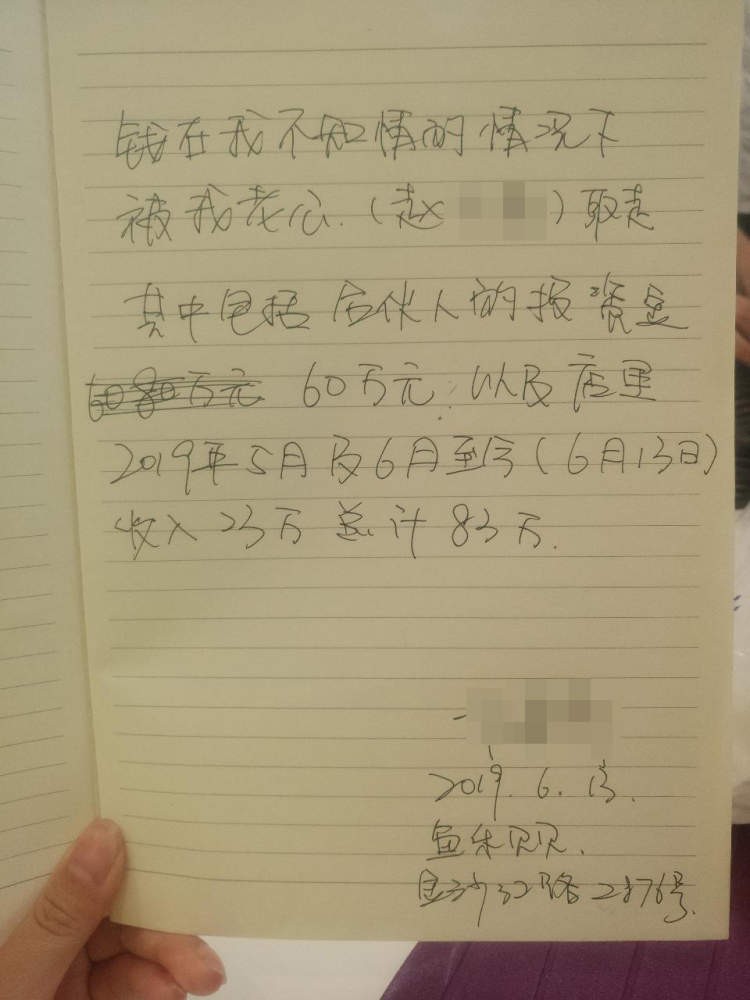 钱在我不知情的情况下
被我老公.（赵 ）取走
其中包括合伙人的投资金
6080万元 60万元. 以及店里
2019年5月及6月至今（6月13日）
收入23万 总计83万.
2019.6.13.
鱼乐贝贝.
金沙江路2876号.